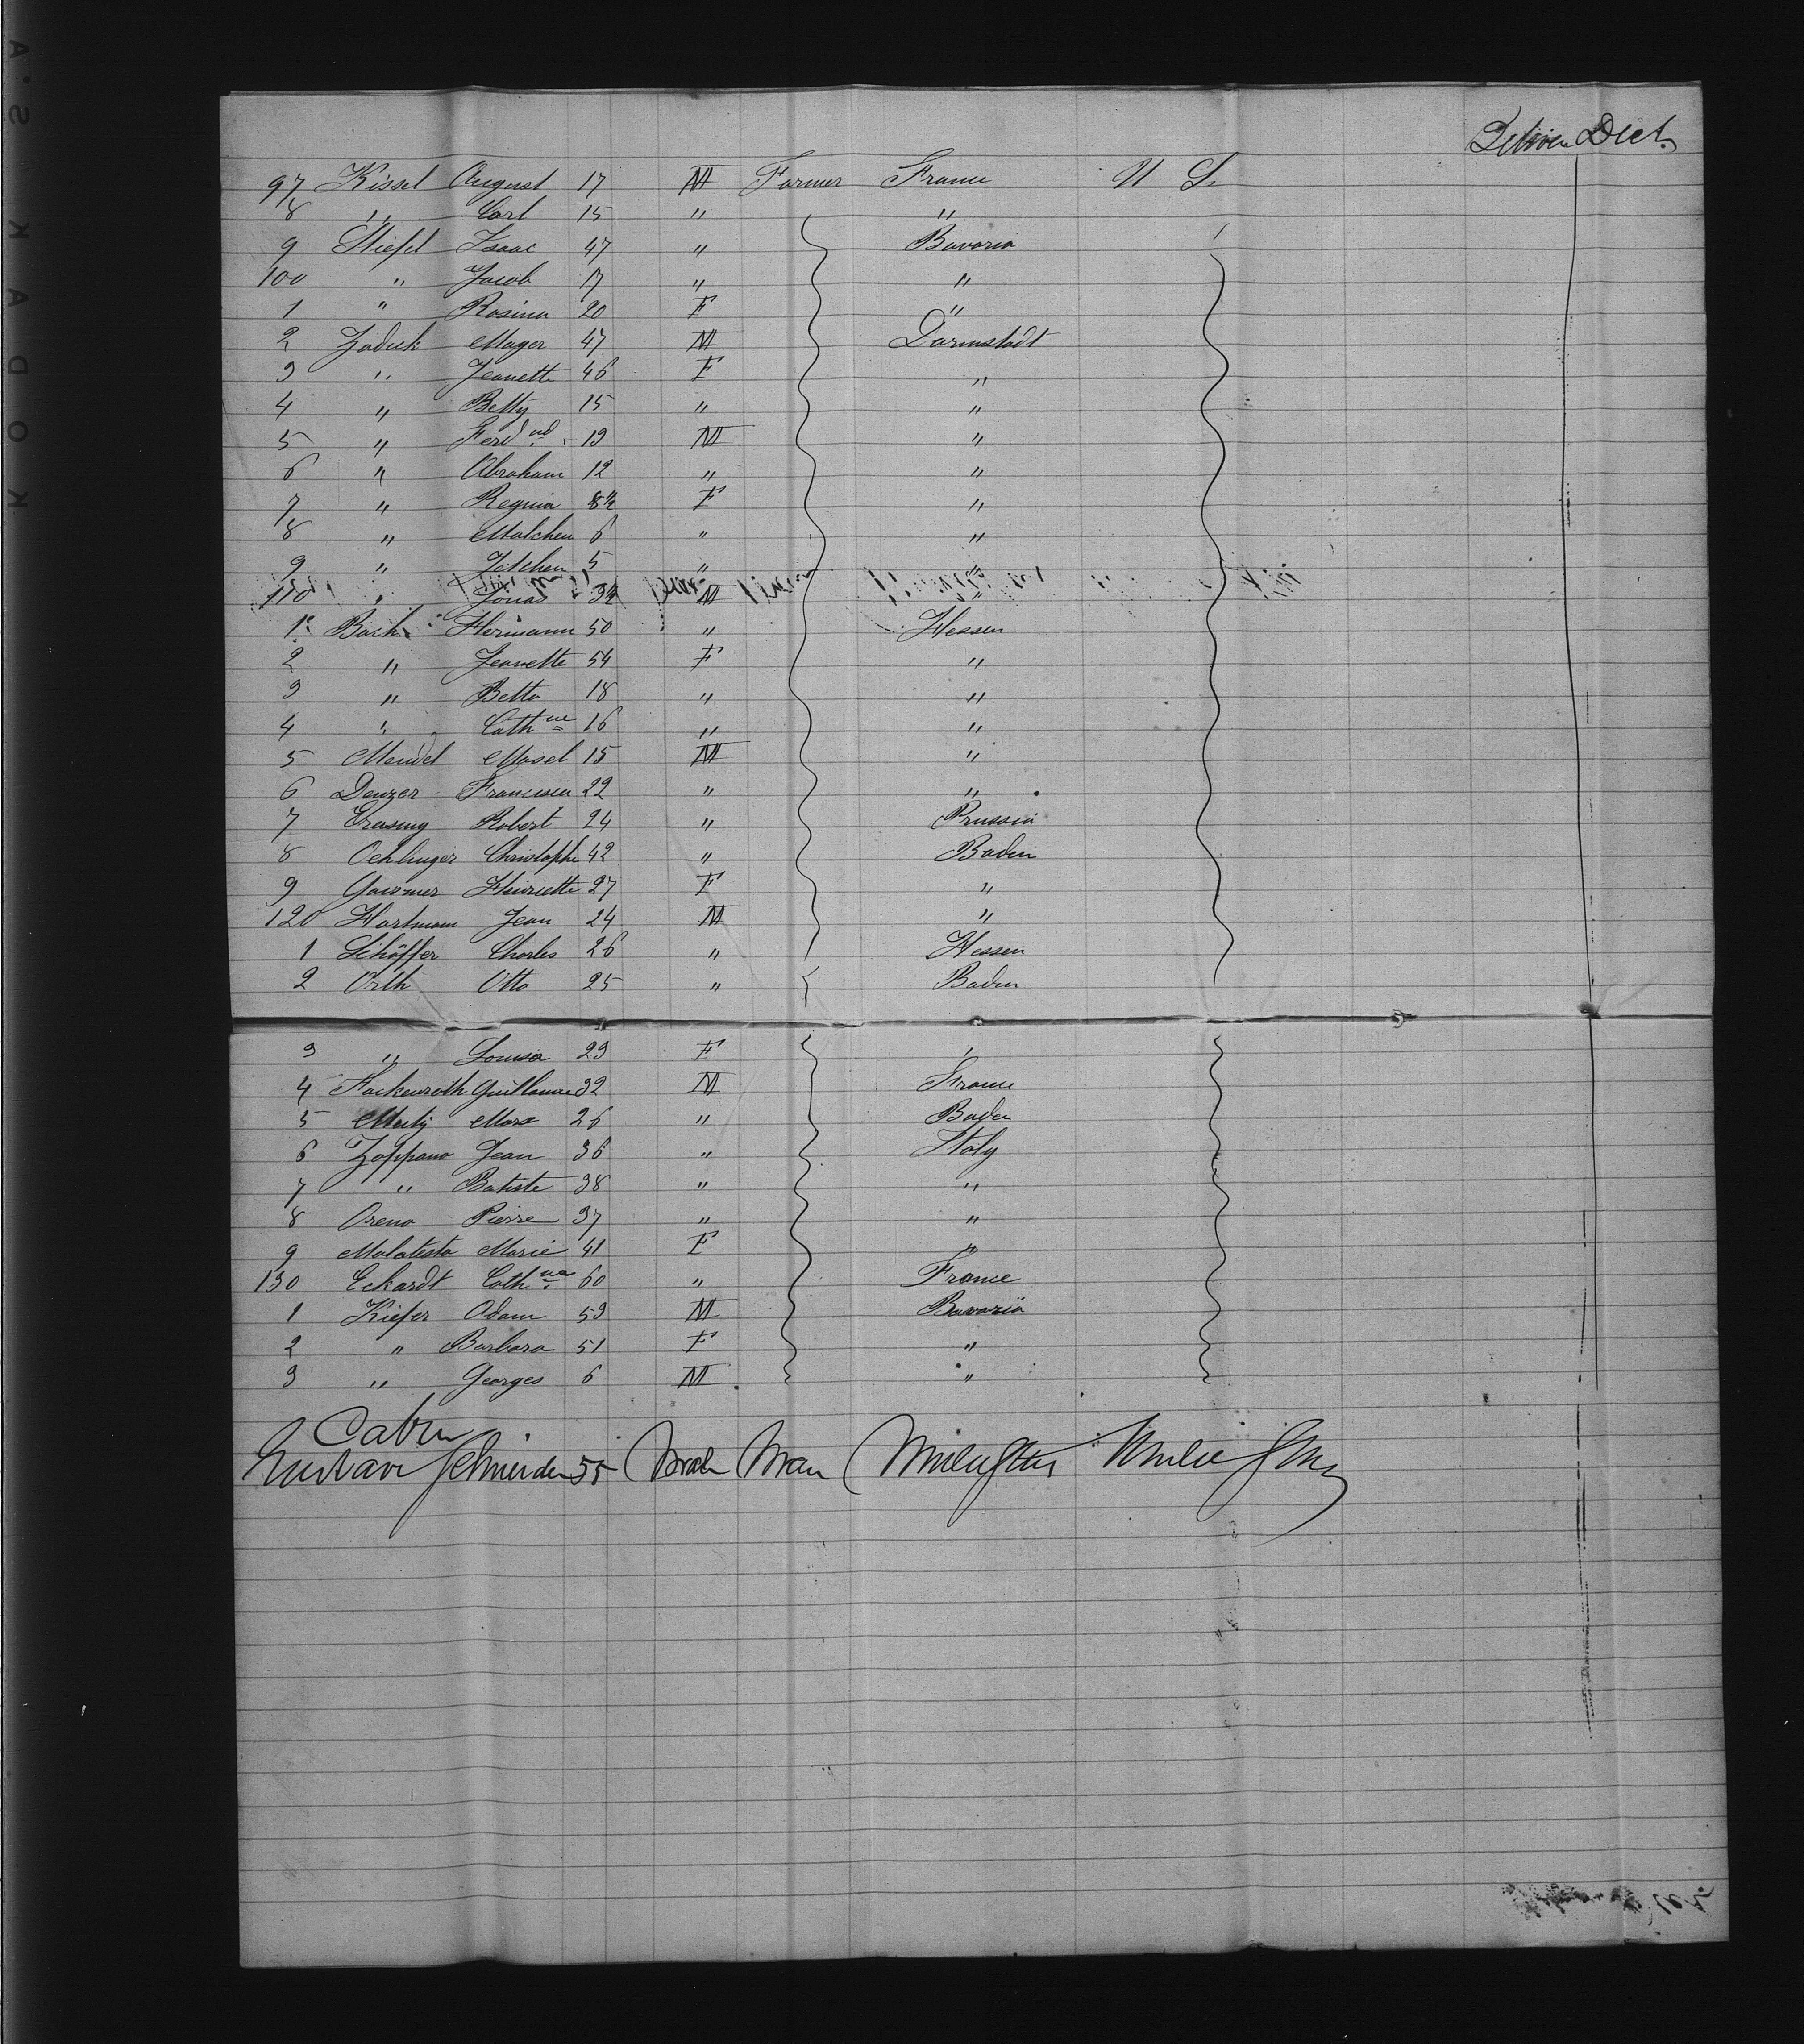 Dect.
97 Kissel August 17 M Farmer France U S.
8 " Carl 15 " "
9 Stiefel Isaac 47 " Bavaria
100 " Jacob 17 " "
1 " Rosina 20 F "
2 Zadeck Mayer 47 M Darmstadt
3 " Jeanette 46 F "
4 " Betty 15 " "
5 " Ferd nd 19 M "
6 " Abraham 12 " "
7 " Regina 8½ F "
8 " Malchen 6 " "
9 " 5 " "
110 " Jonas 3½ M "
1 Bach Hermann 50 " Hessen
2 " Jeanette 54 F "
3 " Betta 18 " "
4 " Cath ne 16 " "
5 Mendel Mosel 15 M "
6 Denzer 22 " "
7 Robert 24 " Prussia
8 Oehlinger Christophe 42 " Baden
9 Henriette 27 F "
120 Hartmann Jean 24 M "
1 Schöffer Charles 26 " Hessen
2 Orth Otto 25 " Baden
3 " Louisa 23 F "
4 Fackenroth Guillaume 32 M France
5 26 " Baden
6 Zoppano Jean 36 " Italy
7 " Batiste 38 " "
8 Oreno Pierre 37 " "
9 Malatesta Marie 41 F "
130 Eckardt Cath ne 60 " France
1 Kiefer Adam 53 M Bavaria
2 " Barbara 51 F "
3 " Georges 6 M "
Cabin
Gustave Schneider 55 Male